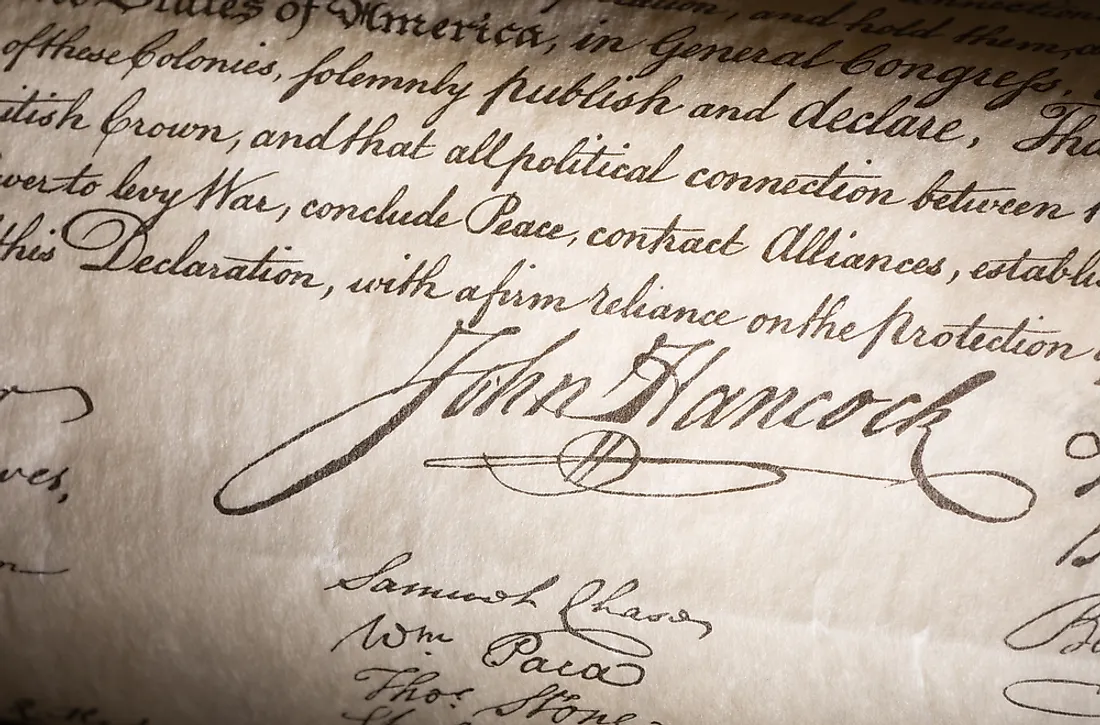 States of America, in General Congress,
and hold them, a
of these Colonies, solemnly publish and declare, Tha
itish Crown, and that all political connection between
wer to levy War, conclude Peace, contract Alliances, establi
this Declaration, with a firm reliance on the protection
John Hancock
Samuel Chase
Wm. Paca
Thos. Stone